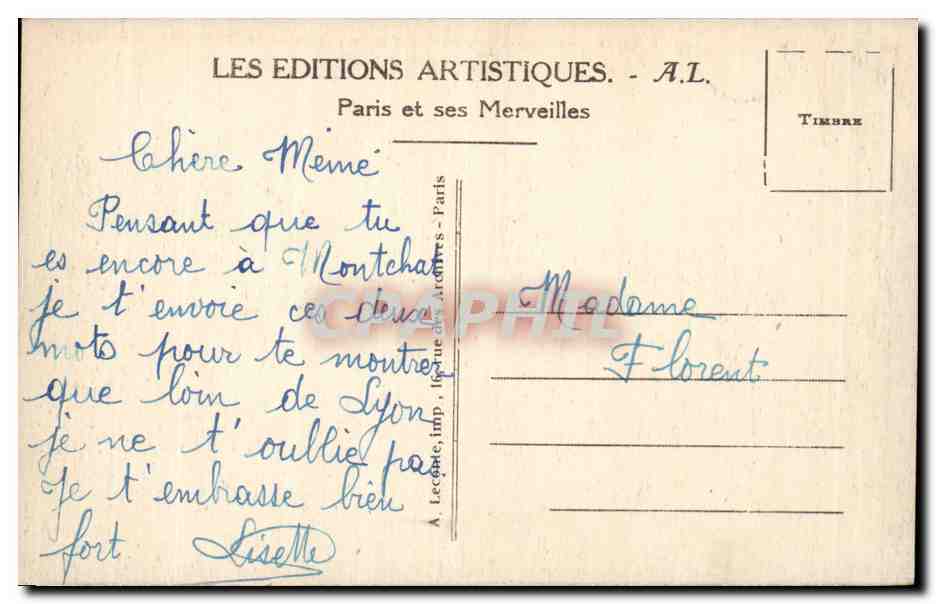 LES EDITIONS ARTISTIQUES. - A.L.
Paris et ses Merveilles
TIMBRE
Chère Mémé
Pensant que tu
es encore à Montchat
je t'envoie ces deux
mots pour te montrer
que loin de Lyon
je ne t'oublie pas
Je t'embrasse bien
fort Lisette
A. Leconte, imp., 16, rue des Archives - Paris
Madame
Florent
CPAPHIL